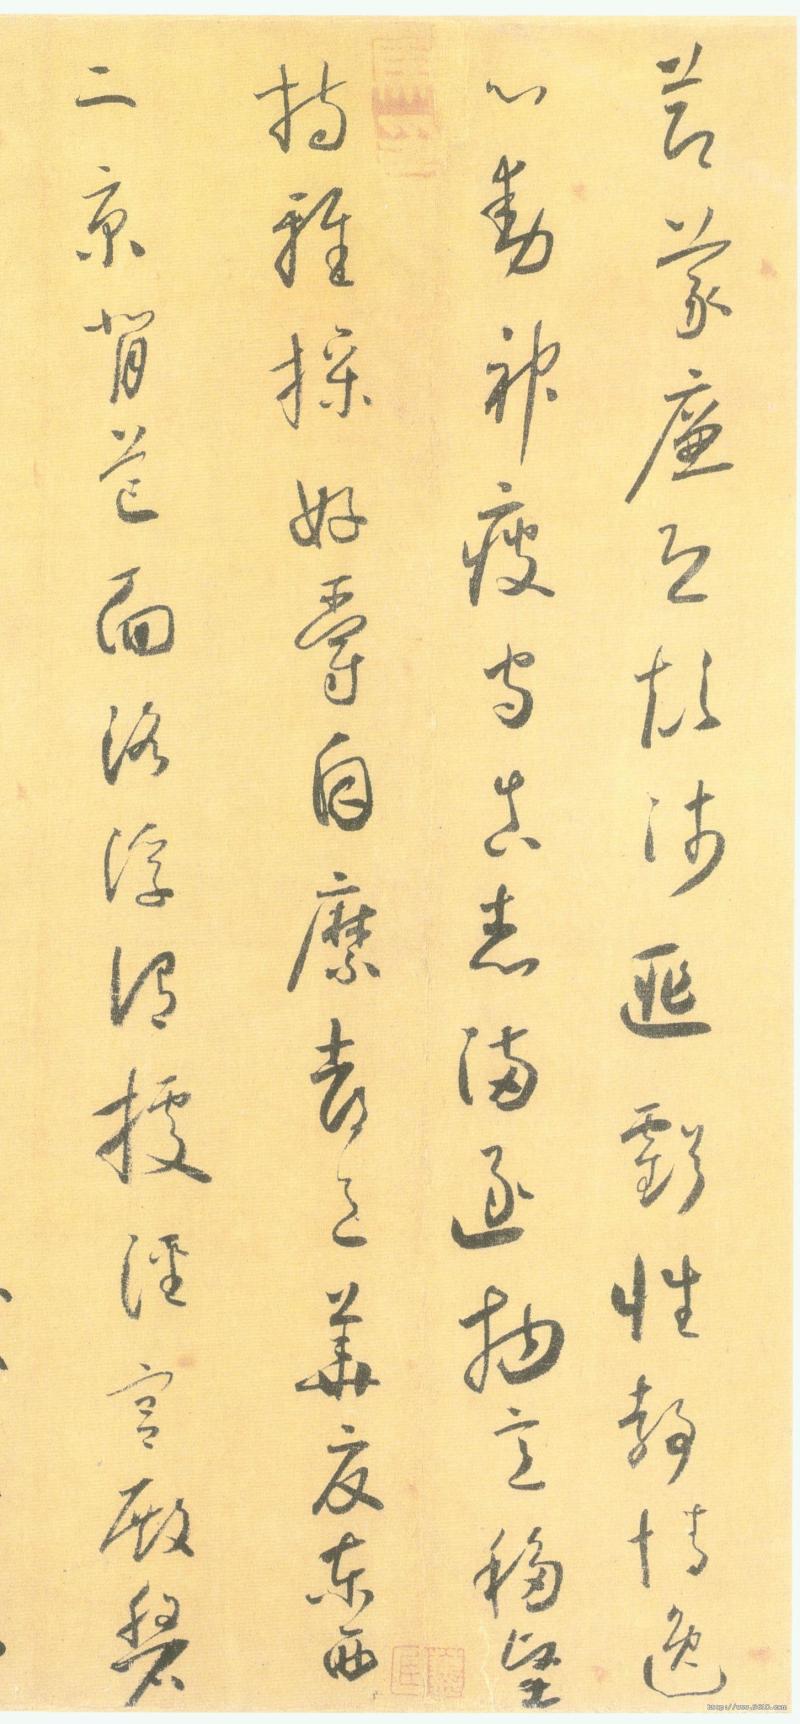 節義廉退顛沛匪虧性靜情逸
心動神疲守真志滿逐物意移堅
持雅操好爵自縻都邑華夏東西
二京背芒面洛浮渭據涇宮殿盤